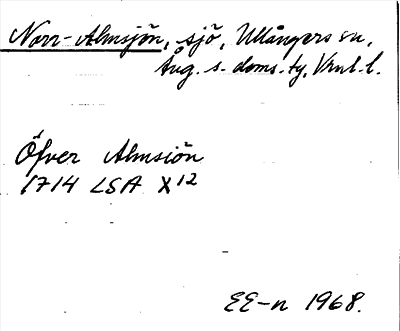 Norr-Almsjön, sjö, Ullångers sn,
Ång. s. doms. tg, Vrnl. l.
Öfver Almsiön
1714 LSA X12
EE-n 1968.